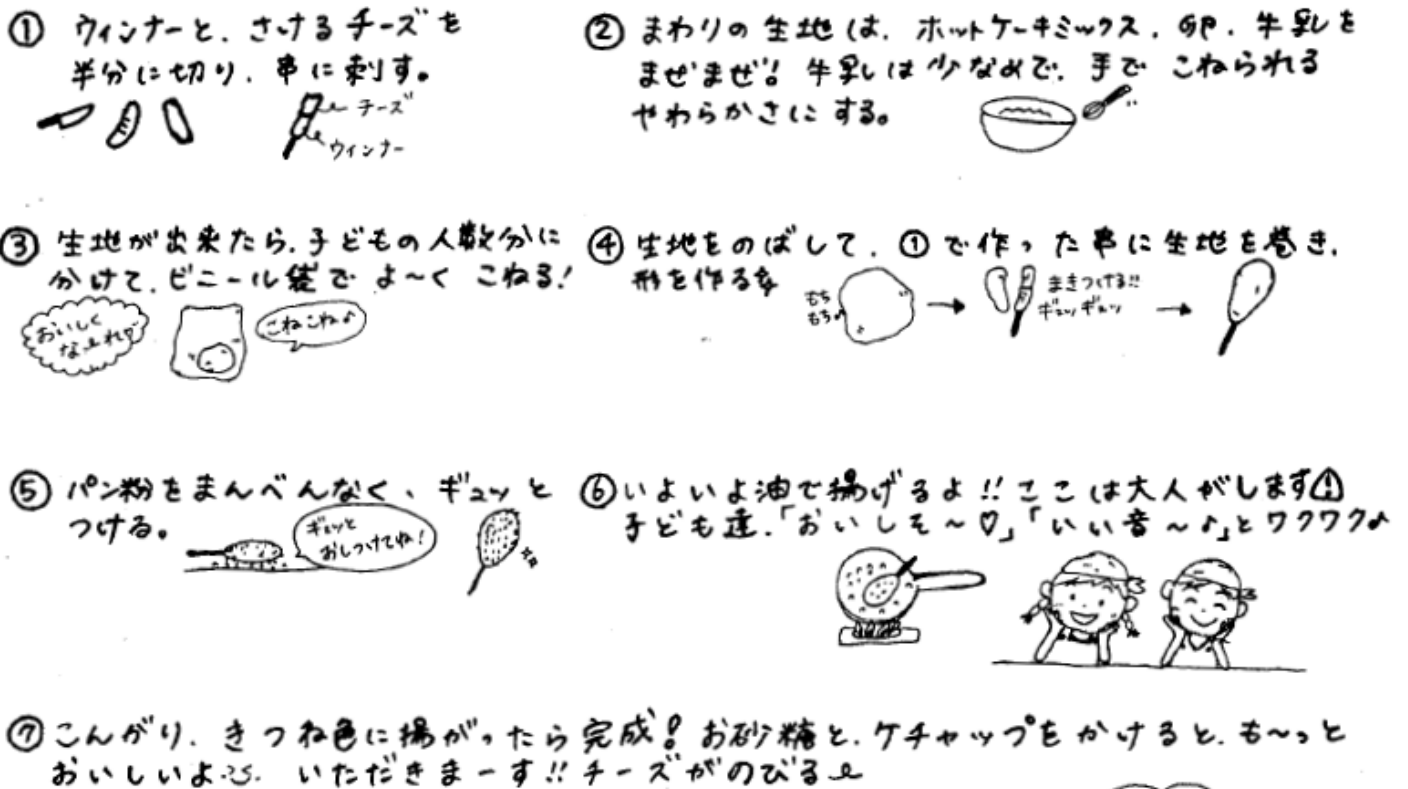 ① ウィンナーと、さけるチーズを
半分に切り、串に刺す。
チーズ
ウィンナー
② まわりの生地は、ホットケーキミックス、卵、牛乳を
まぜまぜ! 牛乳は少なめで、手で こねられる
やわらかさに する。
③ 生地が出来たら、子どもの人数分に
分けて、ビニール袋で よ〜く こねる!
おいしく
なーれ♡
こねこね♪
④ 生地をのばして、①で作った串に生地を巻き、
形を作る
もち
もち♪
まきつける!!
ギュッギュッ
⑤ パン粉をまんべんなく、ギュッと
つける。
ギュッと
おしつけてね!
⑥ いよいよ油で揚げるよ!!ここは大人がします⚠
子ども達、「おいしそ〜♡」「いい音〜♪」とワクワク♪
⑦ こんがり、きつね色に揚がったら完成! お砂糖と、ケチャップをかけると、も〜っと
おいしいよ いただきまーす!! チーズがのびる